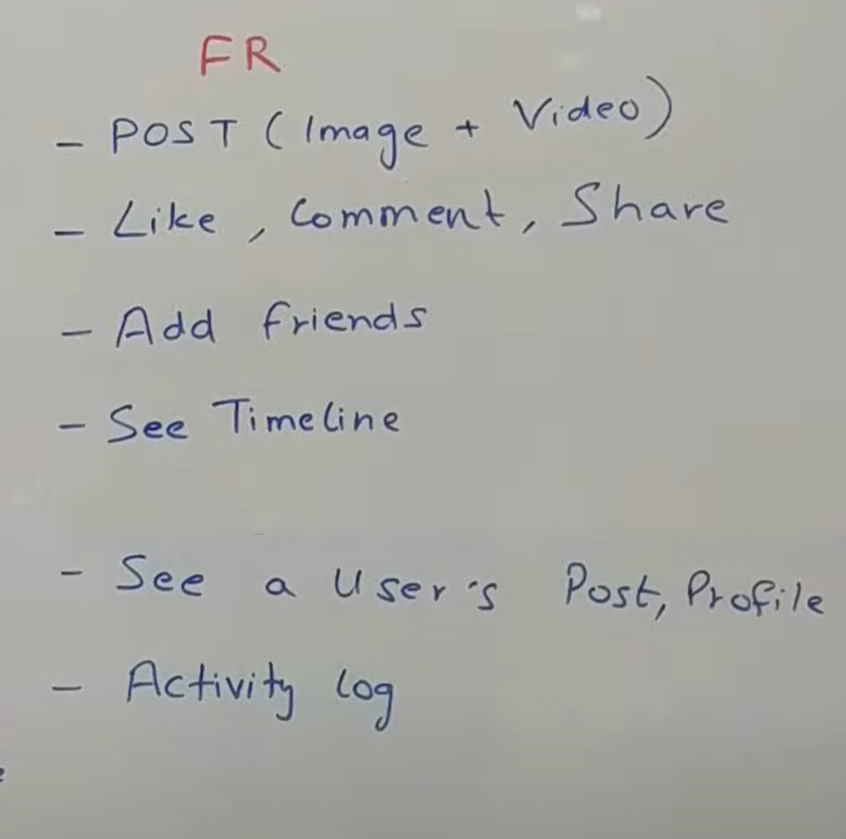 FR
- POST (Image + Video)
- Like, Comment, Share
- Add friends
- See Timeline
- See a User's Post, Profile
- Activity log